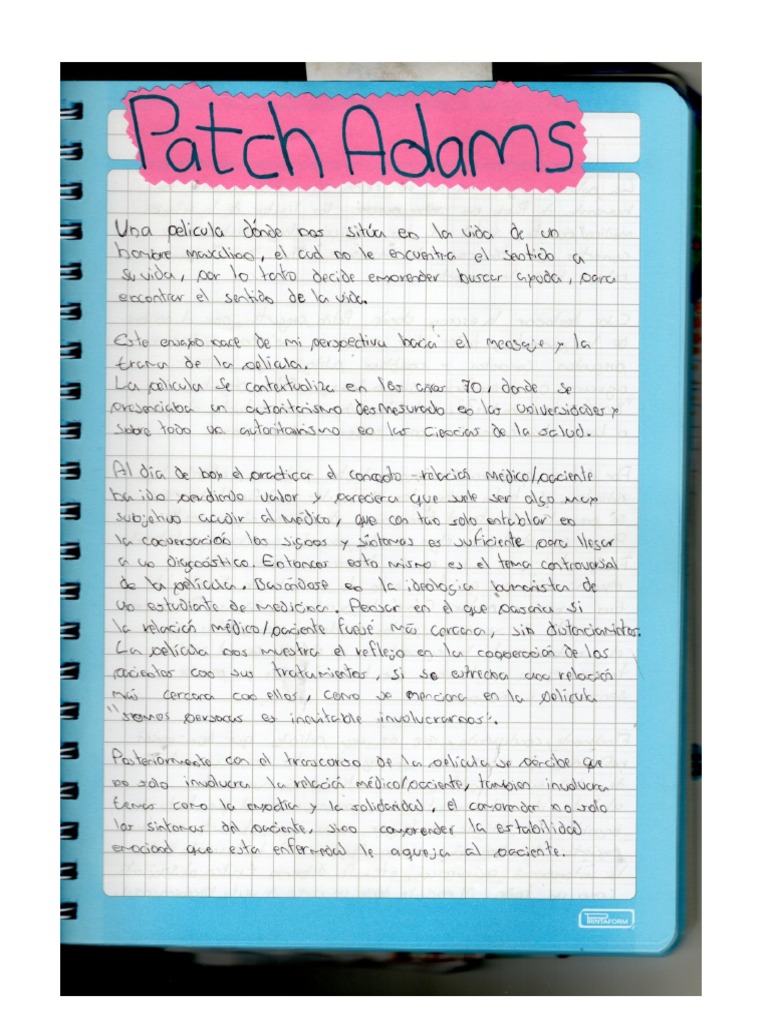 Patch Adams
Una pelicula dónde nos sitúa en la vida de un
hombre masculino, el cual no le encuentra el sentido a
su vida, por lo tanto decide emprender buscar ayuda, para
encontrar el sentido de la vida.
Este ensayo nace de mi perspectiva hacia el mensaje y la
trama de la pelicula.
La pelicula se contextualiza en los años 70, donde se
presenciaba un autoritarismo desmesurado en las universidades y
sobre todo un autoritarismo en las ciencias de la salud.
Al día de hoy el practicar el concepto -relación médico/paciente
ha ido perdiendo valor y pareciera que suele ser algo muy
subjetivo acudir al médico, que con tan solo entablar en
la conversación los signos y síntomas es suficiente para llegar
a un diagnóstico. Entonces esto mismo es el tema controversial
de la pelicula. Basándose en la ideologia humanista de
un estudiante de medicina. Pensar en el que pasaria si
la relación médico/paciente fuese más cercana, sin distanciamientos.
La pelicula nos muestra el reflejo en la cooperación de los
pacientes con sus tratamientos, si se estrecha una relación
más cercana con ellos, como se menciona en la pelicula
"somos personas es inevitable involucrarnos".
Posteriormente con el transcurso de la pelicula se percibe que
no solo involucra la relación médico/paciente, tambien involucra
temas como la empatia y la solidaridad, el comprender no solo
los sintomas del paciente, sino comprender la estabilidad
emocional que esta enfermedad le aqueja al paciente.
PRINTAFORM